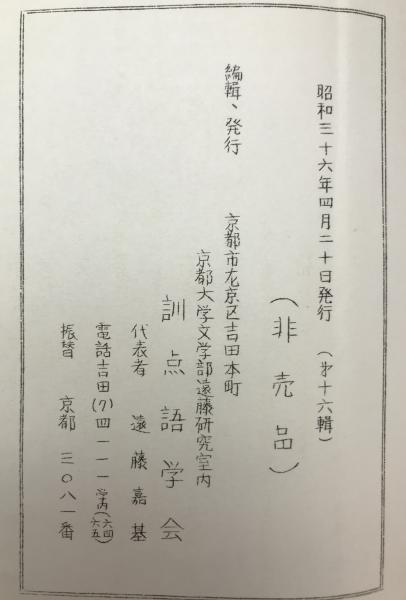 昭和三十六年四月二十日発行　（才十六輯）
（非売品）
編輯、発行
京都市左京区吉田本町
京都大学文学部遠藤研究室内
訓点語学会
代表者　遠藤嘉基
電話吉田(7)四一一一　学内(六四六五)
振替　京都　三〇八一番